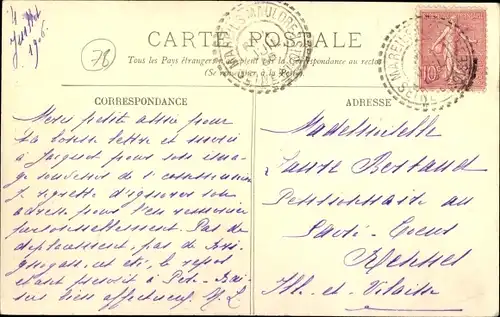 4
Juillet
1906
78
CARTE POSTALE
Tous les Pays étrangers n'acceptent pas la Correspondance au recto
(Se renseigner à la Poste)
CORRESPONDANCE
Merci petit amie pour
ta bonne lettre et merci
à Jacques pour son ima-
ge souvenir de l'
Je regrette d'ignorer son
adresse pour l'en remercier
personnellement. Pas de
déplacement, pas de
cet été, le repos
étant prescrit à
bien affectueux Y. L.
ADRESSE
Mademoiselle
Bertrand
Pensionnaire au
Sacré-Coeur
Rennes
Ille-et-Vilaine
10